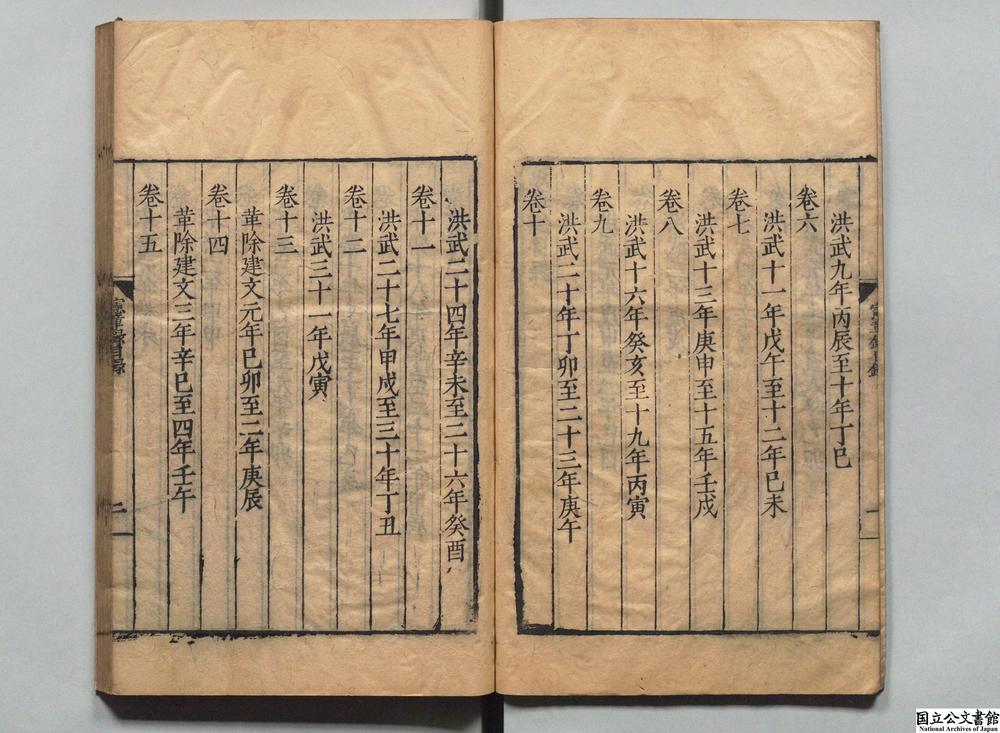 洪武九年丙辰至十年丁巳
卷六
洪武十一年戊午至十二年己未
卷七
洪武十三年庚申至十五年壬戌
卷八
洪武十六年癸亥至十九年丙寅
卷九
洪武二十年丁卯至二十三年庚午
卷十
洪武二十四年辛未至二十六年癸酉
卷十一
洪武二十七年甲戌至三十年丁丑
卷十二
洪武三十一年戊寅
卷十三
革除建文元年己卯至二年庚辰
卷十四
革除建文三年辛巳至四年壬午
卷十五
憲章錄目錄
二
国立公文書館
National Archives of Japan